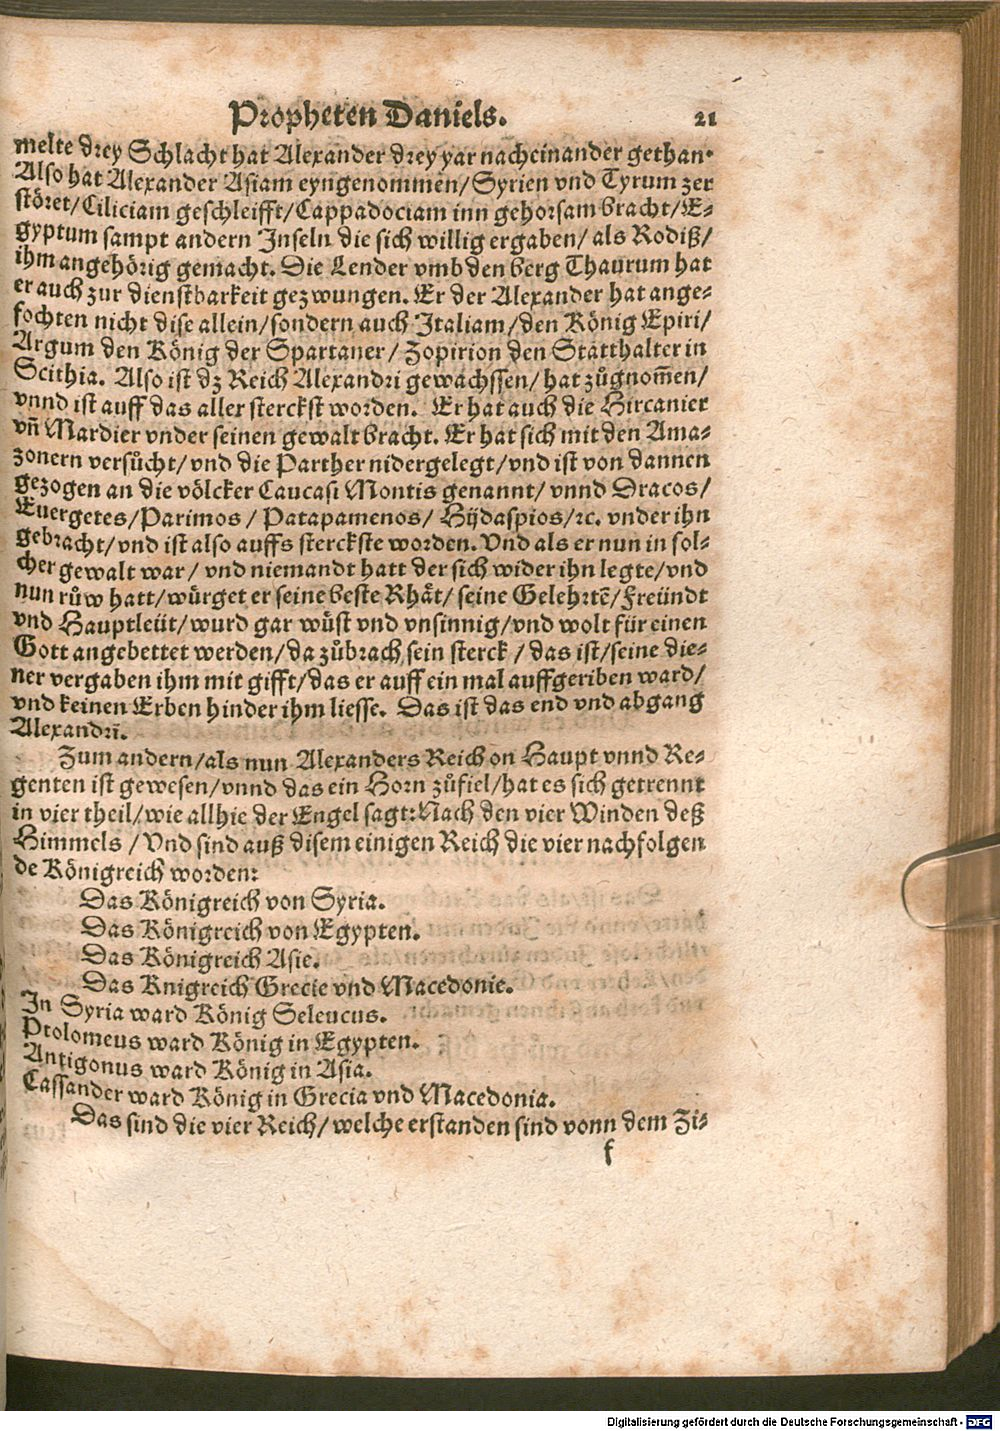 Propheten Daniels. 21
melte drey Schlacht hat Alexander drey yar nacheinander gethan.
Also hat Alexander Asiam eyngenommen/Syrien vnd Tyrum zer
störet/Ciliciam geschleifft/Cappadociam inn gehorsam bracht/E-
gyptum sampt andern Inseln die sich willig ergaben/als Rodiß/
ihm angehörig gemacht. Die Lender vmb den berg Thaurum hat
er auch zur dienstbarkeit gezwungen. Er der Alexander hat ange-
fochten nicht dise allein/sondern auch Italiam/den König Epiri/
Argum den König der Spartaner/Zopirion den Statthalter in
Scithia. Also ist dz Reich Alexandri gewachssen/hat zůgnom̃en/
vnnd ist auff das aller sterckst worden. Er hat auch die Hircanier
vñ Mardier vnder seinen gewalt bracht. Er hat sich mit den Ama-
zonern versůcht/vnd die Parther nidergelegt/vnd ist von dannen
gezogen an die völcker Caucasi Montis genannt/vnnd Dracos/
Euergetes/Parimos/Patapamenos/Hÿdaspios/ꝛc. vnder ihn
gebracht/vnd ist also auffs sterckste worden. Vnd als er nun in sol-
cher gewalt war/vnd niemandt hatt der sich wider ihn legte/vnd
nun růw hatt/würget er seine beste Rhät/seine Gelehrtẽ/Freündt
vnd Hauptleüt/wurd gar wüst vnd vnsinnig/vnd wolt für einen
Gott angebettet werden/da zůbrach sein sterck/das ist/seine die-
ner vergaben ihm mit gifft/das er auff ein mal auffgeriben ward/
vnd keinen Erben hinder ihm liesse. Das ist das end vnd abgang
Alexandrĩ.
Zum andern/als nun Alexanders Reich on Haupt vnnd Re-
genten ist gewesen/vnnd das ein Horn zůfiel/hat es sich getrennt
in vier theil/wie allhie der Engel sagt: Nach den vier Winden deß
Himmels/Vnd sind auß disem einigen Reich die vier nachfolgen
de Königreich worden:
Das Königreich von Syria.
Das Königreich von Egypten.
Das Königreich Asie.
Das Knigreich Grecie vnd Macedonie.
In Syria ward König Seleucus.
Ptolomeus ward König in Egypten.
Antigonus ward König in Asia.
Cassander ward König in Grecia vnd Macedonia.
Das sind die vier Reich/welche erstanden sind vonn dem Zi-
f
Digitalisierung gefördert durch die Deutsche Forschungsgemeinschaft - DFG